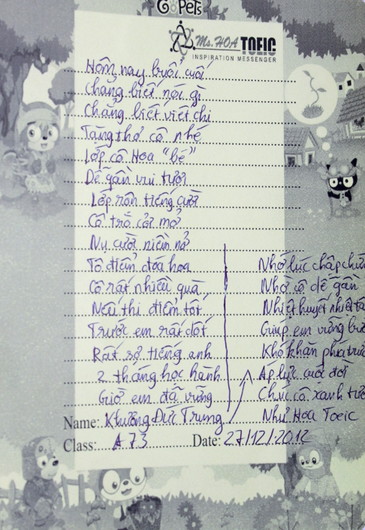 Go Pets
Ms. HOA TOEIC
INSPIRATION MESSENGER
Hôm nay buổi cuối
Chẳng biết nói gì
Chẳng biết viết chi
Tặng thơ cô nhé
Lớp cô Hoa "bé"
Dễ gần vui tươi
Lớp rộn tiếng cười
Cô trò cởi mở
Nụ cười niềm nở
Tô điểm đóa hoa
Có rất nhiều quà
Nếu thi điểm tốt
Trước em rất dốt
Rất sợ tiếng anh
2 tháng học hành
Giờ em đã vững
Nhớ lúc chập
Nhờ cô dễ gần
Nhiệt huyết
Giúp em vững
Khó khăn phía
Áp lực cuộc đời
Chúc cô xanh
Như Hoa Toeic
Name: Khương Đức Trung
Class: A73 Date: 27/12/2012